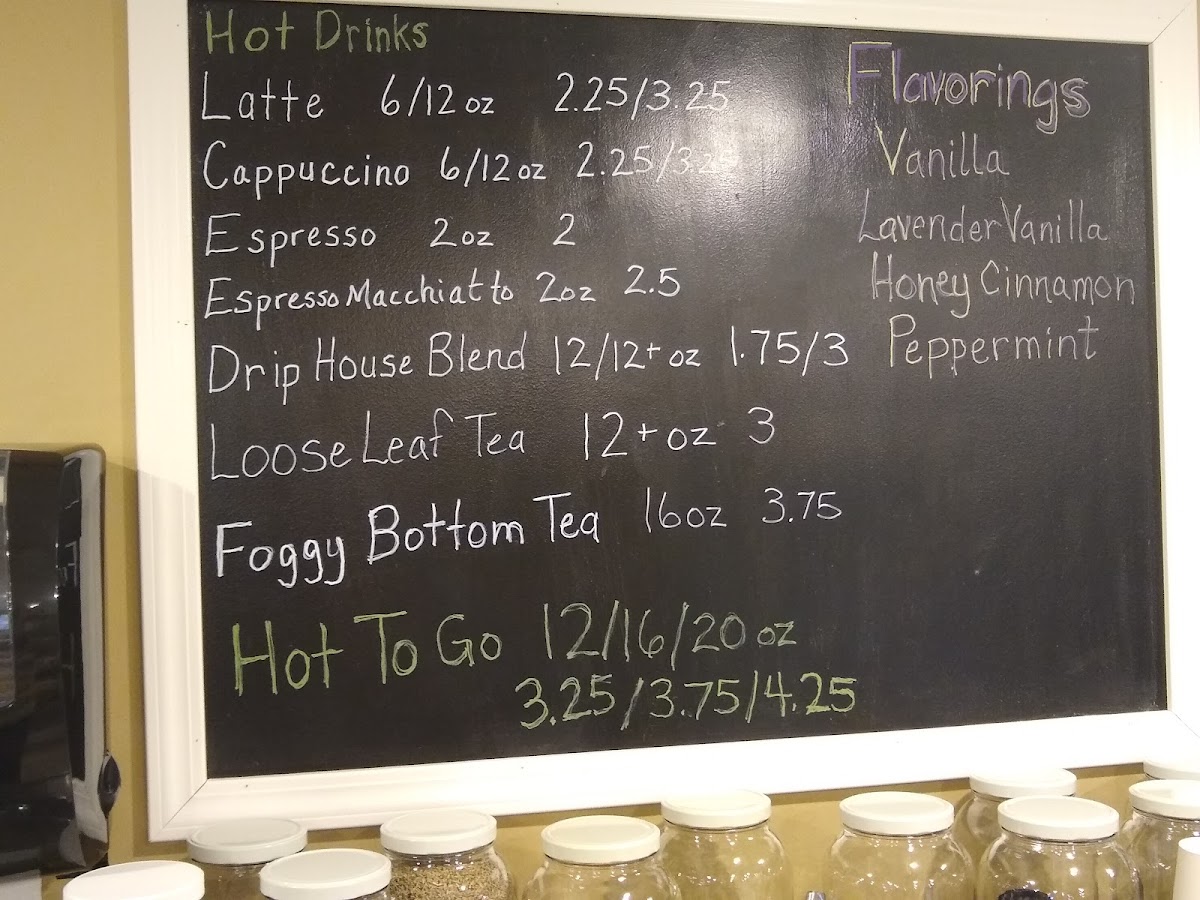 Hot Drinks
Latte 6/12 oz 2.25/3.25
Cappuccino 6/12 oz 2.25/3.25
Espresso 2oz 2
Espresso Macchiatto 2oz 2.5
Drip House Blend 12/12+ oz 1.75/3
Loose Leaf Tea 12+ oz 3
Foggy Bottom Tea 16oz 3.75
Hot To Go 12/16/20 oz
3.25/3.75/4.25
Flavorings
Vanilla
Lavender Vanilla
Honey Cinnamon
Peppermint